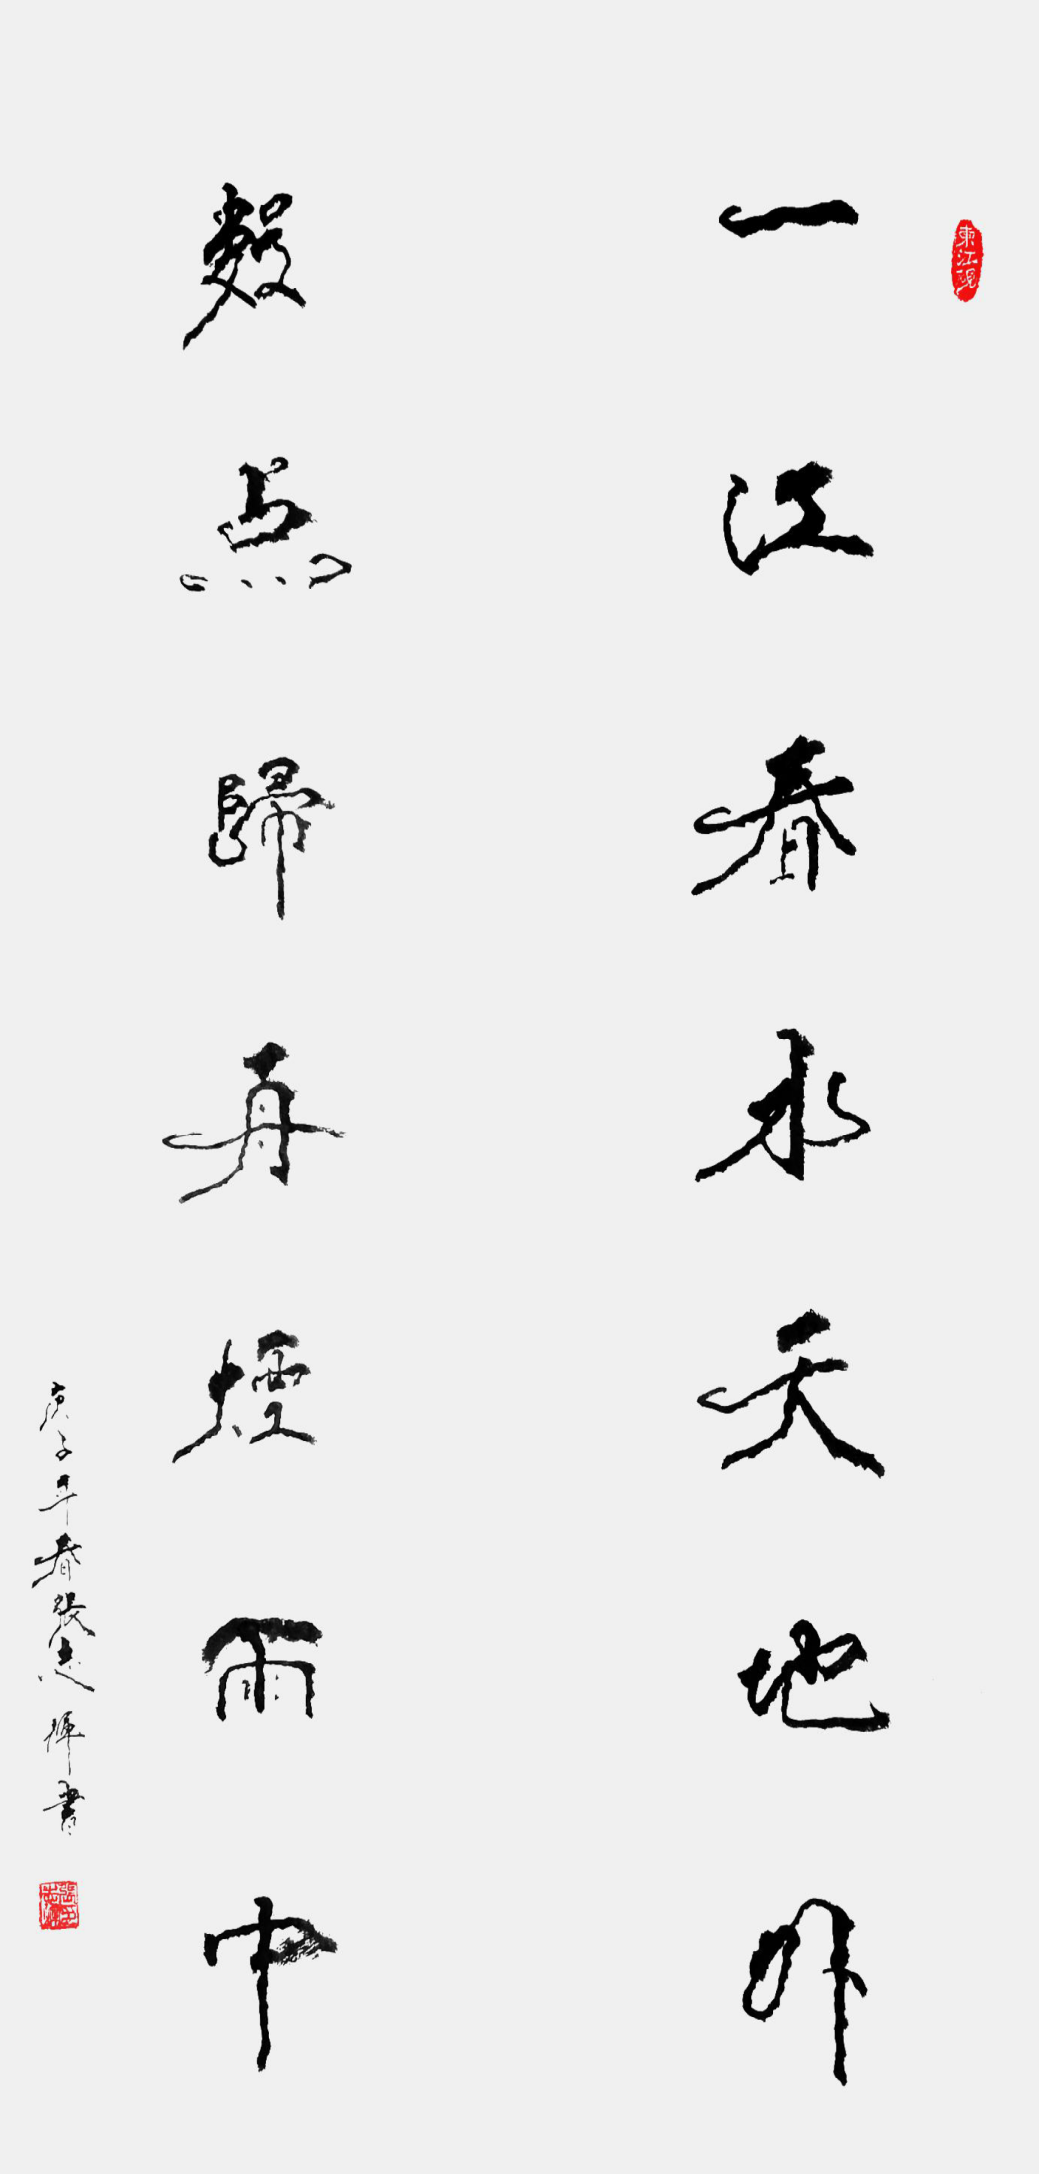 一江春水天地外
數点歸舟煙雨中
庚子年春張志輝書